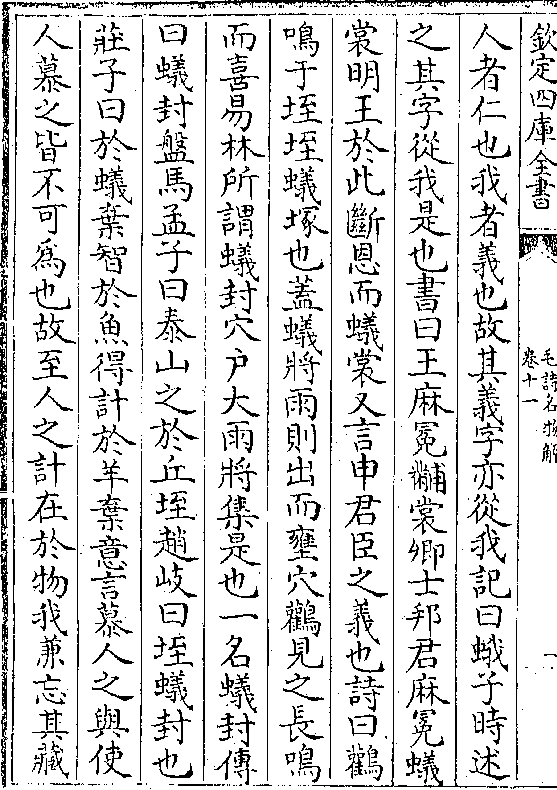 欽定四庫全書
毛詩名物解
卷十一
一
人者仁也我者義也故其義字亦從我記曰蛾子時述
之其字從我是也書曰王麻冕黼裳卿士邦君麻冕蟻
裳明王於此斷恩而蟻裳又言申君臣之義也詩曰鸛
鳴于垤垤蟻塚也蓋蟻將雨則出而壅穴鸛見之長鳴
而喜易林所謂蟻封穴户大雨將集是也一名蟻封傳
曰蟻封盤馬孟子曰泰山之於丘垤趙岐曰垤蟻封也
莊子曰於蟻棄智於魚得計於羊棄意言慕人之與使
人慕之皆不可為也故至人之計在於物我兼忘其藏